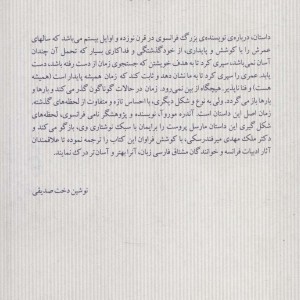 داستان، درباره‌ی نویسنده‌ی بزرگ فرانسوی در قرن نوزده و اوایل بیستم می‌باشد که سالهای
عمرش را با کوشش و پایداری، از خودگذشتگی و فداکاری بسیار که تحمل آن چندان
آسان نمی‌باشد، سپری کرد تا به هدف خویشتن که جستجوی زمان از دست رفته باشد، دست
یابد. عمری را سپری کرد تا به ما نشان دهد و ثابت کند که زمان همیشه پایدار است (همیشه
هست) و فناناپذیر هیچگاه از بین نمی‌رود. زمان در حالات گوناگون گذر می‌کند و بارها و
بارها باز می‌گردد. ولی به نوع و شکل دیگری، با احساس تازه و متفاوت از لحظه‌های گذشته.
زمان اصل این داستان است. آندره موروآ، نویسنده و پژوهشگر نامی فرانسوی، لحظه‌های
شکل گیری این داستان مارسل پروست را برایمان با سبک نوشتاری وی، بازگو می‌کند و
دکتر ملک مهدی میرفندرسکی، با کوشش فراوان این کتاب را ترجمه نموده تا علاقمندان
آثار ادبیات فرانسه و خوانندگان مشتاق فارسی زبان، آنرا بهتر و آسان‌تر درک نمایند.
نوشین دخت صدیقی